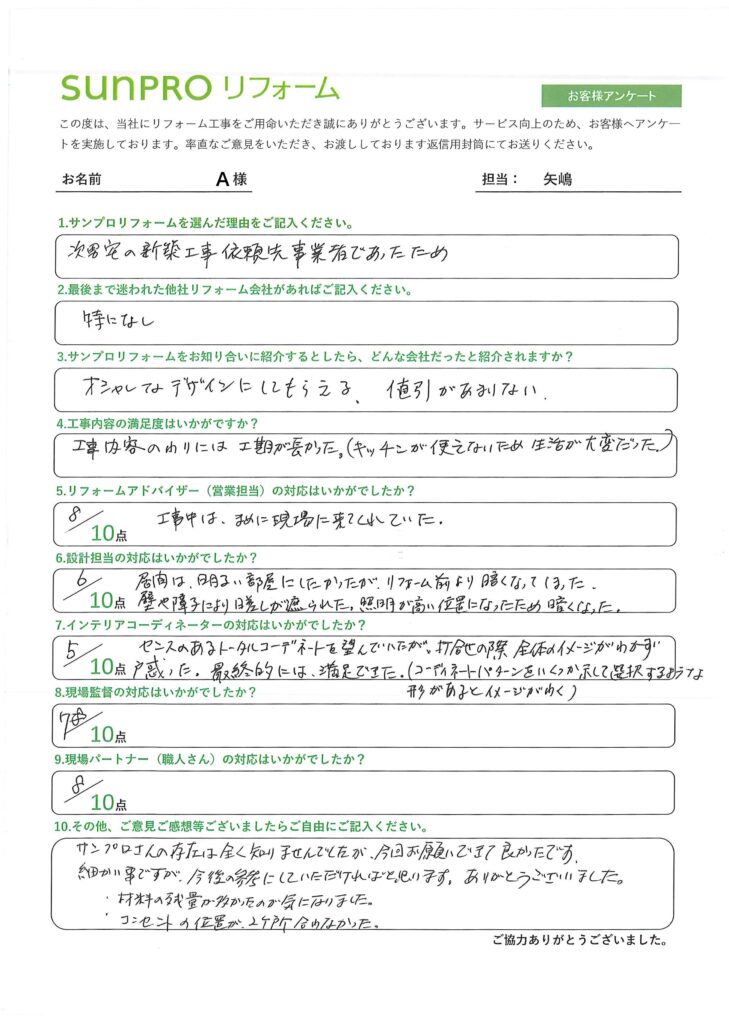 sunPRO リフォーム
お客様アンケート
この度は、当社にリフォーム工事をご用命いただき誠にありがとうございます。サービス向上のため、お客様へアンケー
トを実施しております。率直なご意見をいただき、お渡ししております返信用封筒にてお送りください。
お名前 A様 担当： 矢嶋
1.サンプロリフォームを選んだ理由をご記入ください。
次男宅の新築工事依頼先事業者であったため
2.最後まで迷われた他社リフォーム会社があればご記入ください。
特になし
3.サンプロリフォームをお知り合いに紹介するとしたら、どんな会社だったと紹介されますか？
オシャレなデザインにしてもらえる、 値引があまりない.
4.工事内容の満足度はいかがですか？
工事内容のわりには工期が長かった。(キッチンが使えないため生活が大変だった。)
5.リフォームアドバイザー（営業担当）の対応はいかがでしたか？
8/10点 工事中は、まめに現場に来てくれていた.
6.設計担当の対応はいかがでしたか？
6/10点 居間は、明るい部屋にしたかったが、リフォーム前より暗くなってしまった.
壁や障子により日差しが遮られた。照明が高い位置になったため暗くなった。
7.インテリアコーディネーターの対応はいかがでしたか？
5/10点 センスのあるトータルコーデネートを望んでいたいたが、打合せの際 全体のイメージがわかず
戸惑った。最終的には、満足できた。(コーディネートパターンをいくつか示して選択するような
形があるとイメージがわく)
8.現場監督の対応はいかがでしたか？
10点
9.現場パートナー（職人さん）の対応はいかがでしたか？
8/10点
10.その他、ご意見ご感想等ございましたらご自由にご記入ください。
サンプロさんの存在は全く知りませんでしたが、今回お願いできて良かったです。
細かい事ですが、今後の参考にしていただければと思います。ありがとうございました。
・材料の残量が多かったのが気になりました。
・コンセントの位置が、2ヶ所合わなかった。
ご協力ありがとうございました。